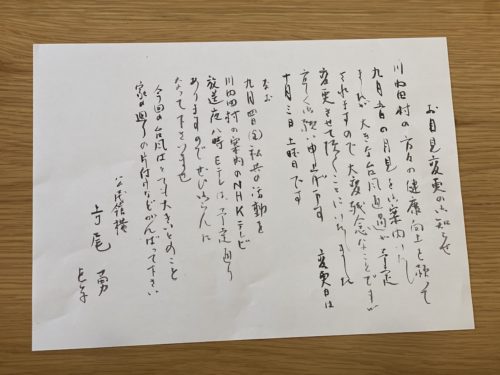 お月見変更のお知らせ
川内村の方々の健康向上を願って
九月五日の月見を御案内いたし
ましたが 大きな台風通過が予定
されますので 大変残念なことですが
変更させて頂くことにいたしました
宜しく御願い申し上げます 変更日は
十月三日土曜日です
なお
九月四日(金)私共の活動を
川内村の案内のNHKテレビ
放送夜八時Eテレは予定通り
ありますのでぜひごらんに
なって下さいませ
今回の台風はとても大きいとのこと
家の廻りの片付けなどがんばって下さい
勇